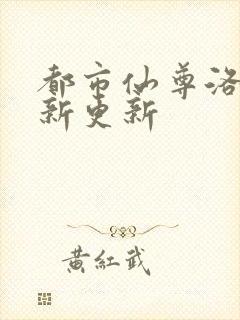 都市仙尊洛
新更新
黃紅武